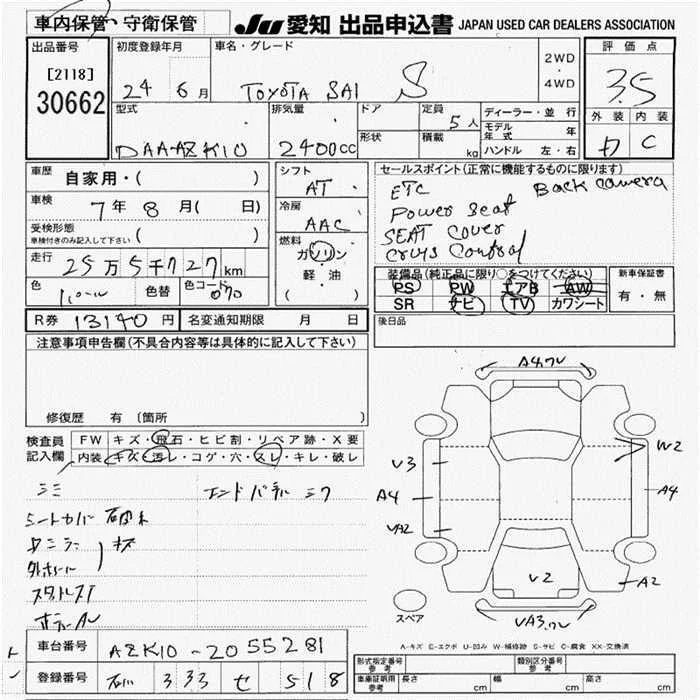 車内保管・守衛保管
JU 愛知 出品申込書 JAPAN USED CAR DEALERS ASSOCIATION
出品番号
[2118]
30662
初度登録年月
24 6月
車名・グレード
TOYOTA SAI S
2WD
・
4WD
評価点
3.5
外装 内装
D C
型式
DAA-AZK10
排気量
2400cc
ドア
形状
定員
5人
積載
kg
ディーラー・並行
モデル年式 年
ハンドル 左・右
車歴
自家用・( )
車検
7年8月( 日)
受検形態
車検付きのみ記入して下さい ( )
走行
25万5千727km
色
パール
色替
色コード
070
シフト
AT
冷房
AAC
燃料
ガソリン
・
軽・油
( )
セールスポイント(正常に機能するものに限ります)
ETC Back camera
Power seat
SEAT cover
Cruys Control
装備品(純正品に限り○をつけてください)
PS PW エアB AW
SR ナビ TV カワシート
新車保証書
有・無
後日品
R券 13140円
名変通知期限 月 日
注意事項申告欄(不具合内容等は具体的に記入して下さい)
修復歴 有 〔箇所 〕
検査員
記入欄
FW キズ・飛石・ヒビ割・リペア跡・X要
内装 キズ・汚レ・コゲ・穴・スレ・キレ・破レ
エンドパネル ミク
シートカバー
A4.ワレ
V3
A4
VA2
W2
A4
V2
A2
VA3.ワレ
スペア
A-キズ E-エクボ U-凹み W-補修跡 S-サビ C-腐食 XX-交換済
車台番号
AZK10-2055281
登録番号
333 せ 518
形式指定番号
参考
類別区分番号
参考
車庫証明用
参考
長さ cm
幅 cm
高さ cm